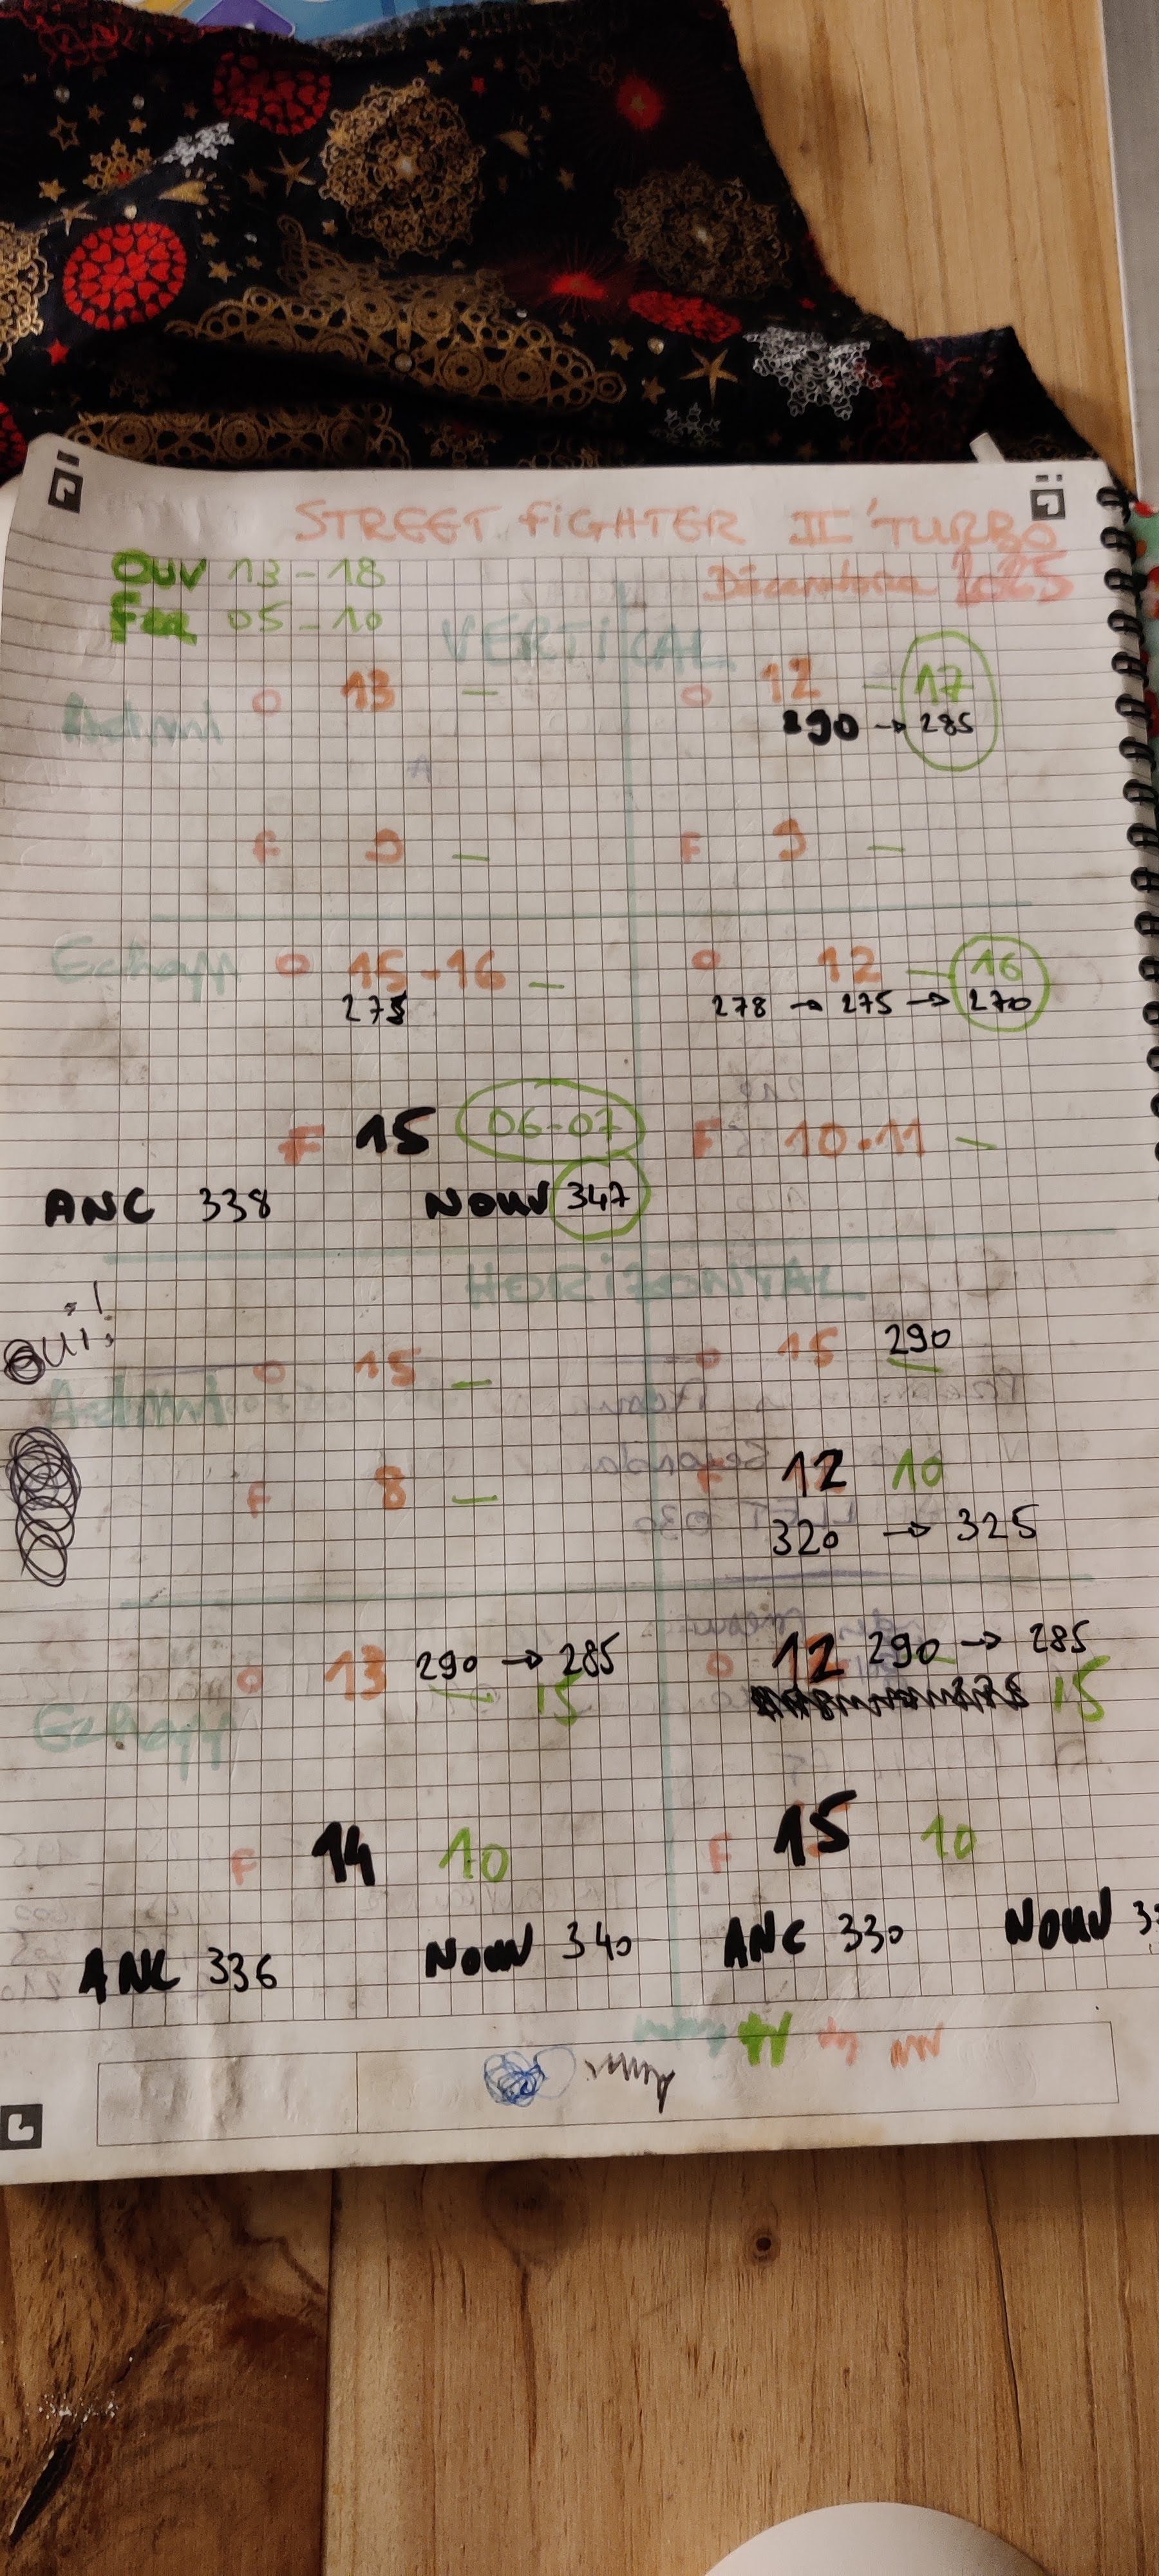 STREET FIGHTER II TURBO
OUV 13-18
Décembre 2025
Fer 05-10
VERTICAL
O 13 — O 12 — 17
Admi
290 → 285
F 9 — F 9 —
Echapp O 15-16 — O 12 — 16
275 278 → 275 → 270
F 15 06-07 F 10-11 —
ANC 338 NOUV 347
HORIZONTAL
OUI!
O 15 — O 15 290
Admi
F 8 — F 12 10
320 → 325
O 13 290 → 285 O 12 290 → 285
15 15
Echapp
F 14 10 F 15 10
ANC 336 NOUV 340 ANC 330 NOUV